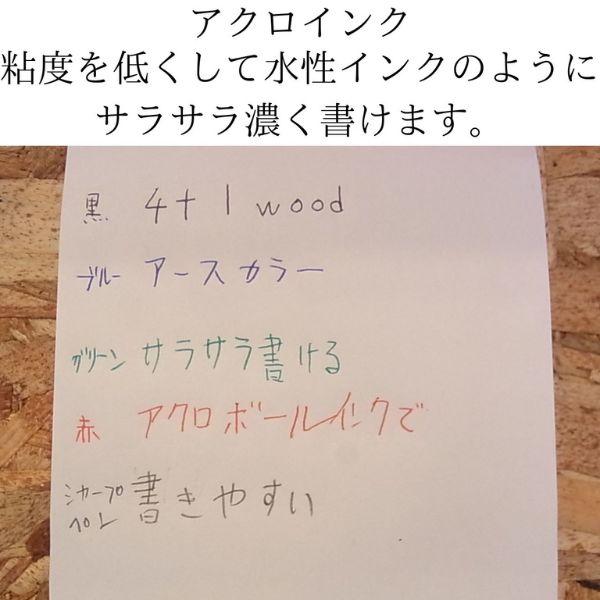 アクロインク
粘度を低くして水性インクのように
サラサラ濃く書けます。
黒 4+1 wood
ブルー アースカラー
グリーン サラサラ書ける
赤 アクロボールインクで
シャープペン 書きやすい